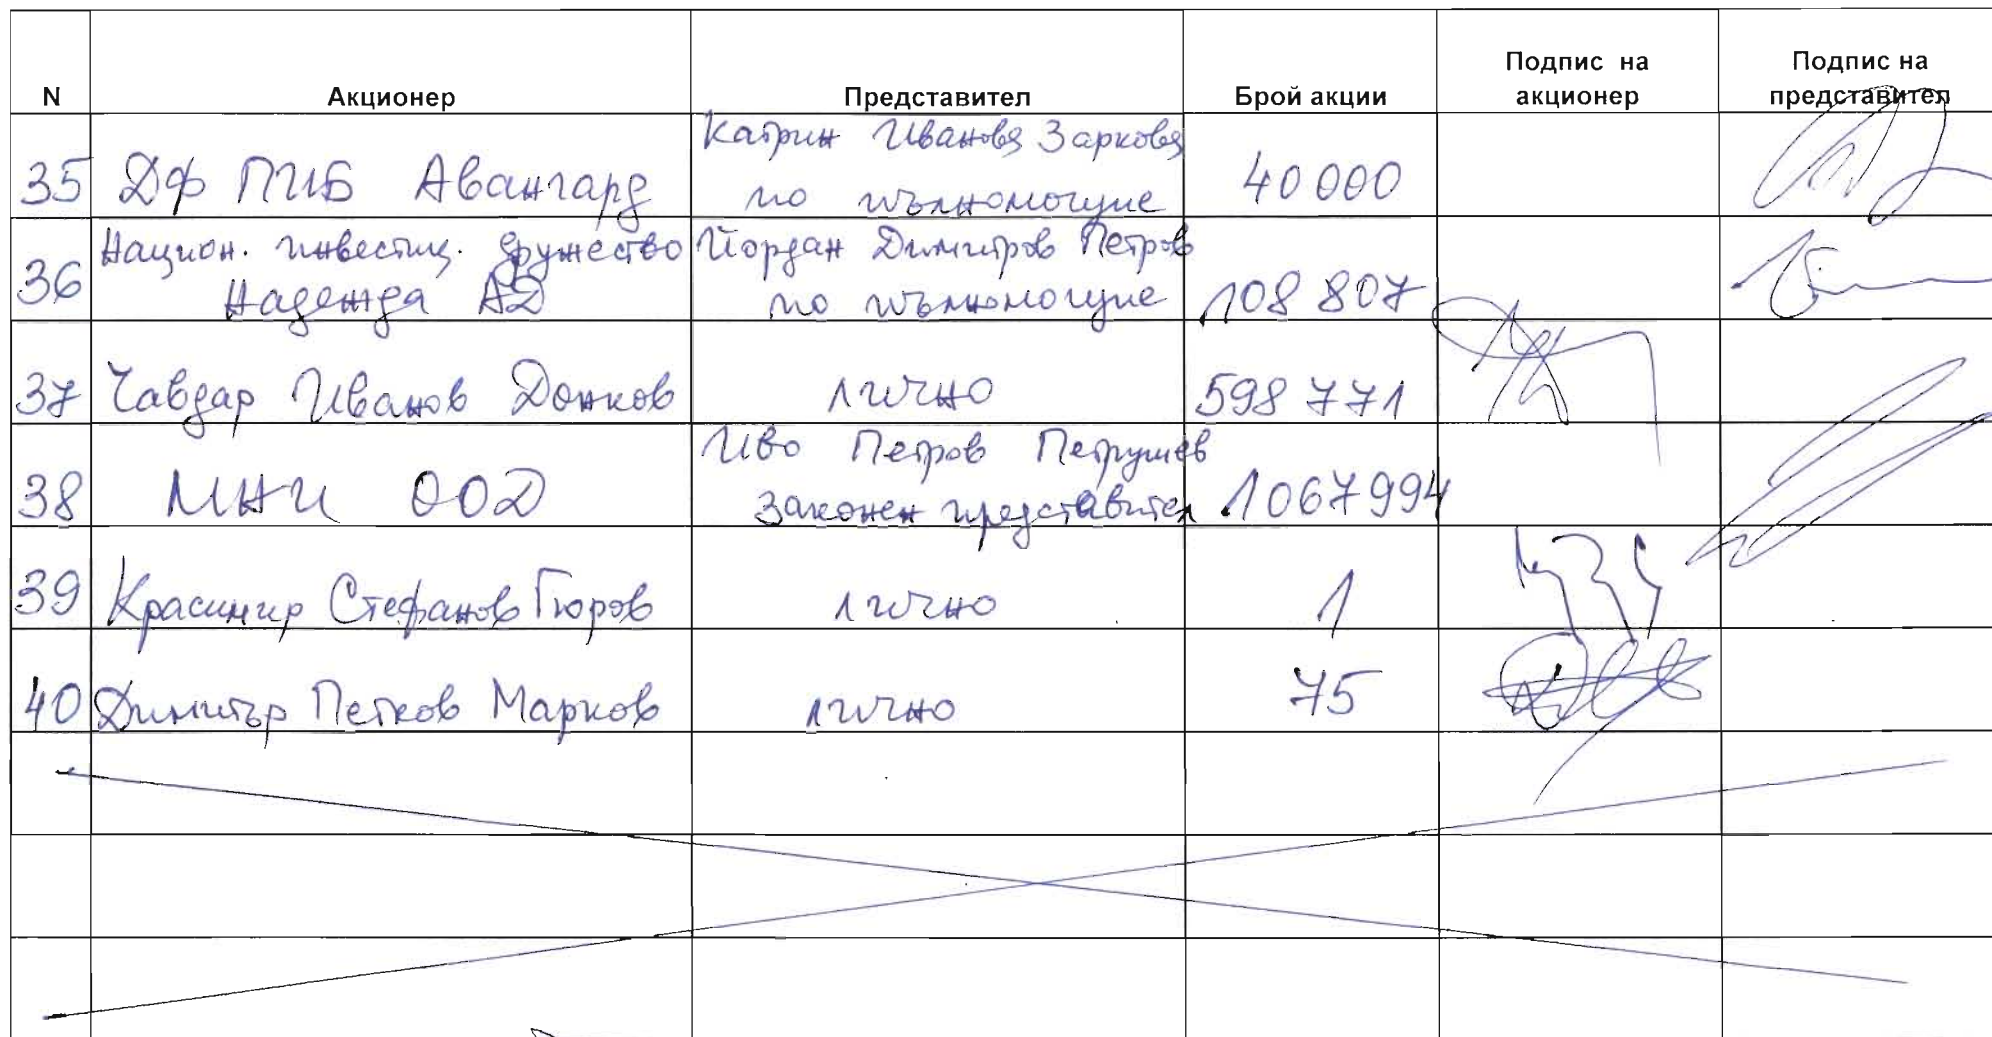 N Акционер Представител Брой акции Подпис на акционер Подпис на представител
35 ДФ ПИБ Авангард Катрин Иванова Заркова 40 000
по пълномощие
36 Национ. инвестиц. дружество Йордан Димитров Петров 108 807
Надежда АД по пълномощие
37 Чавдар Иванов Донков лично 598 771
38 МНИ ООД Иво Петров Петрушев 1067994
Законен представител
39 Красимир Стефанов Гюров лично 1
40 Димитър Петков Марков лично 75